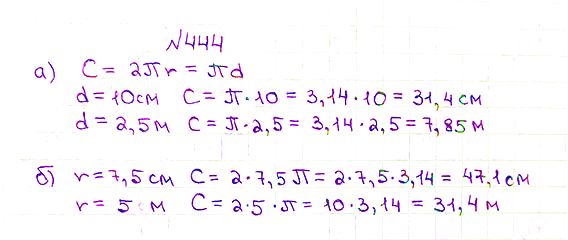 №444
а) C = 2πr = πd
d = 10см C = π·10 = 3,14·10 = 31,4 см
d = 2,5м C = π·2,5 = 3,14·2,5 = 7,85м
б) r = 7,5 см C = 2·7,5π = 2·7,5·3,14 = 47,1 см
r = 5 м C = 2·5·π = 10·3,14 = 31,4 м